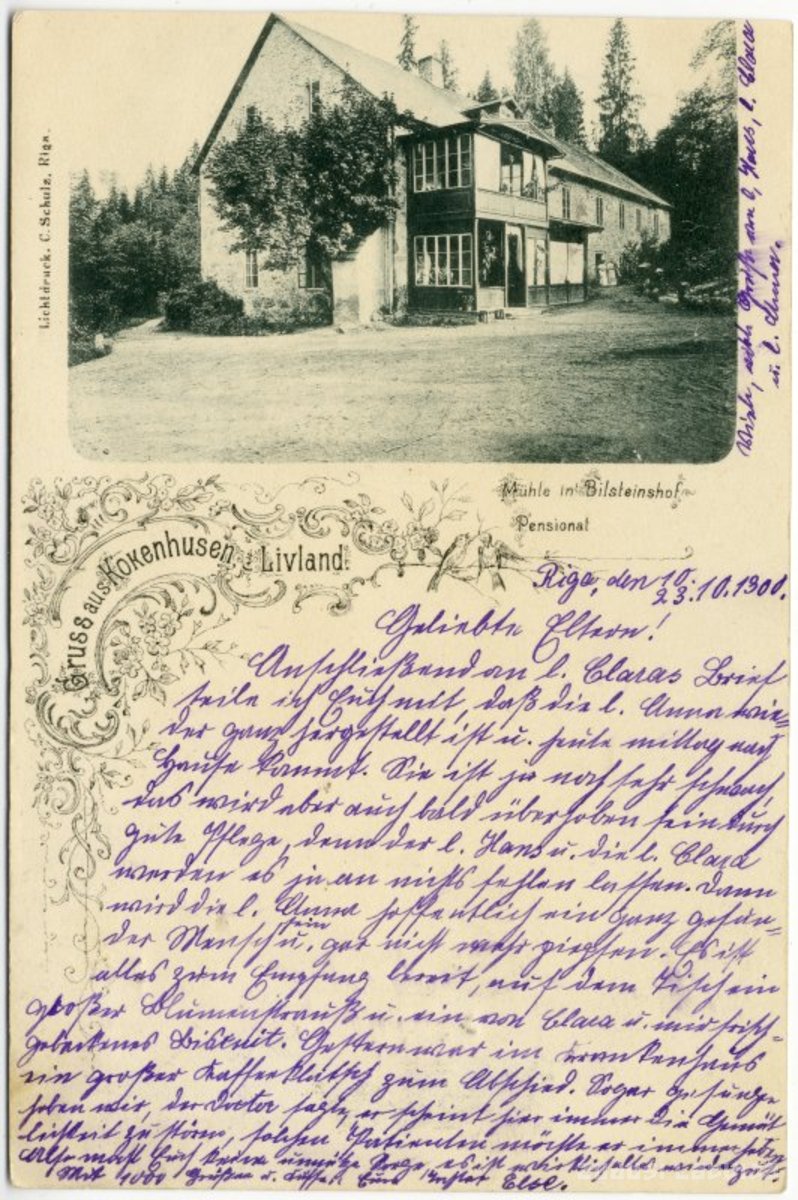 Lichtdruck. C. Schulz, Riga.
Mühle in Bilsteinshof
Pensionat
Gruss aus Kokenhusen, Livland.
Riga, den 10./23.10.1900.
Geliebte Eltern!
Anschließend an l. Claras Brief
teile ich Euch mit, daß die l. Anna wie=
der ganz hergestellt ist u. heute mittag nach
Hause kommt. Sie ist ja noch sehr schwach,
das wird aber auch bald überhoben sein durch
gute Pflege, denn der l. Hans u. die l. Clara
werden es ja an nichts fehlen lassen. Dann
wird die l. Anna hoffentlich ein ganz gesun=
der Mensch sein u. gar nicht mehr piepsen. Es ist
alles zum Empfang bereit, auf dem Tisch ein
großer Blumenstrauß u. ein von Clara u. mir frisch=
gebackenes Biscuit. Gestern war im Krankenhaus
ein großer Kaffeeklatsch zum Abschied. Sogar gesungen
haben wir, der Doctor sagte, er scheint hier immer die Gemüt
lichkeit zu stören, solchen Patienten möchte er immer haben
Also macht Euch keine unnütze Sorge, es ist wirklich alles wieder gut.
Mit 1000 Grüßen u. Küssen Eure Tochter Else.
Viele, viele Grüße von l. Hans, l. Clara
u. l. Anna.